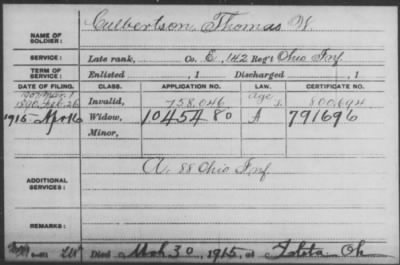 Culbertson, Thomas W.
NAME OF
SOLDIER:
SERVICE:
Late rank, Co. E, 142 Reg't Ohio Inf.
TERM OF
SERVICE:
Enlisted , 1 Discharged , 1
DATE OF FILING. CLASS. APPLICATION NO. LAW. CERTIFICATE NO.
1890, Feb. 26 Invalid, 758,046 Age S. 800,694
1915 Apr 16 Widow, 1045480 A 791696
Minor,
A. 88 Ohio Inf.
ADDITIONAL
SERVICES:
REMARKS:
Died Mch 30, 1915, at Oh